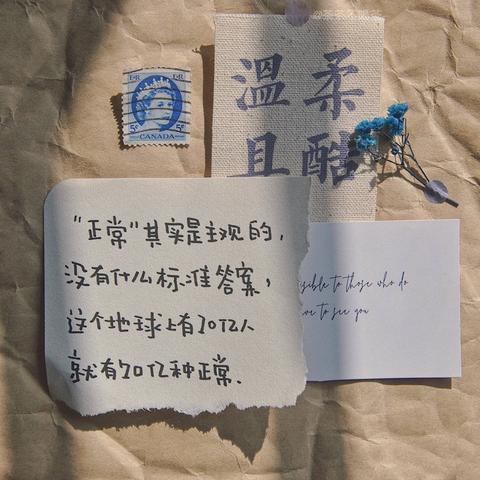 溫柔
且酷
E R E R
5¢ 5¢
CANADA
“正常”其实是主观的，
没有什么标准答案，
这个地球上有70亿人
就有70亿种正常.
to those who do
to see you